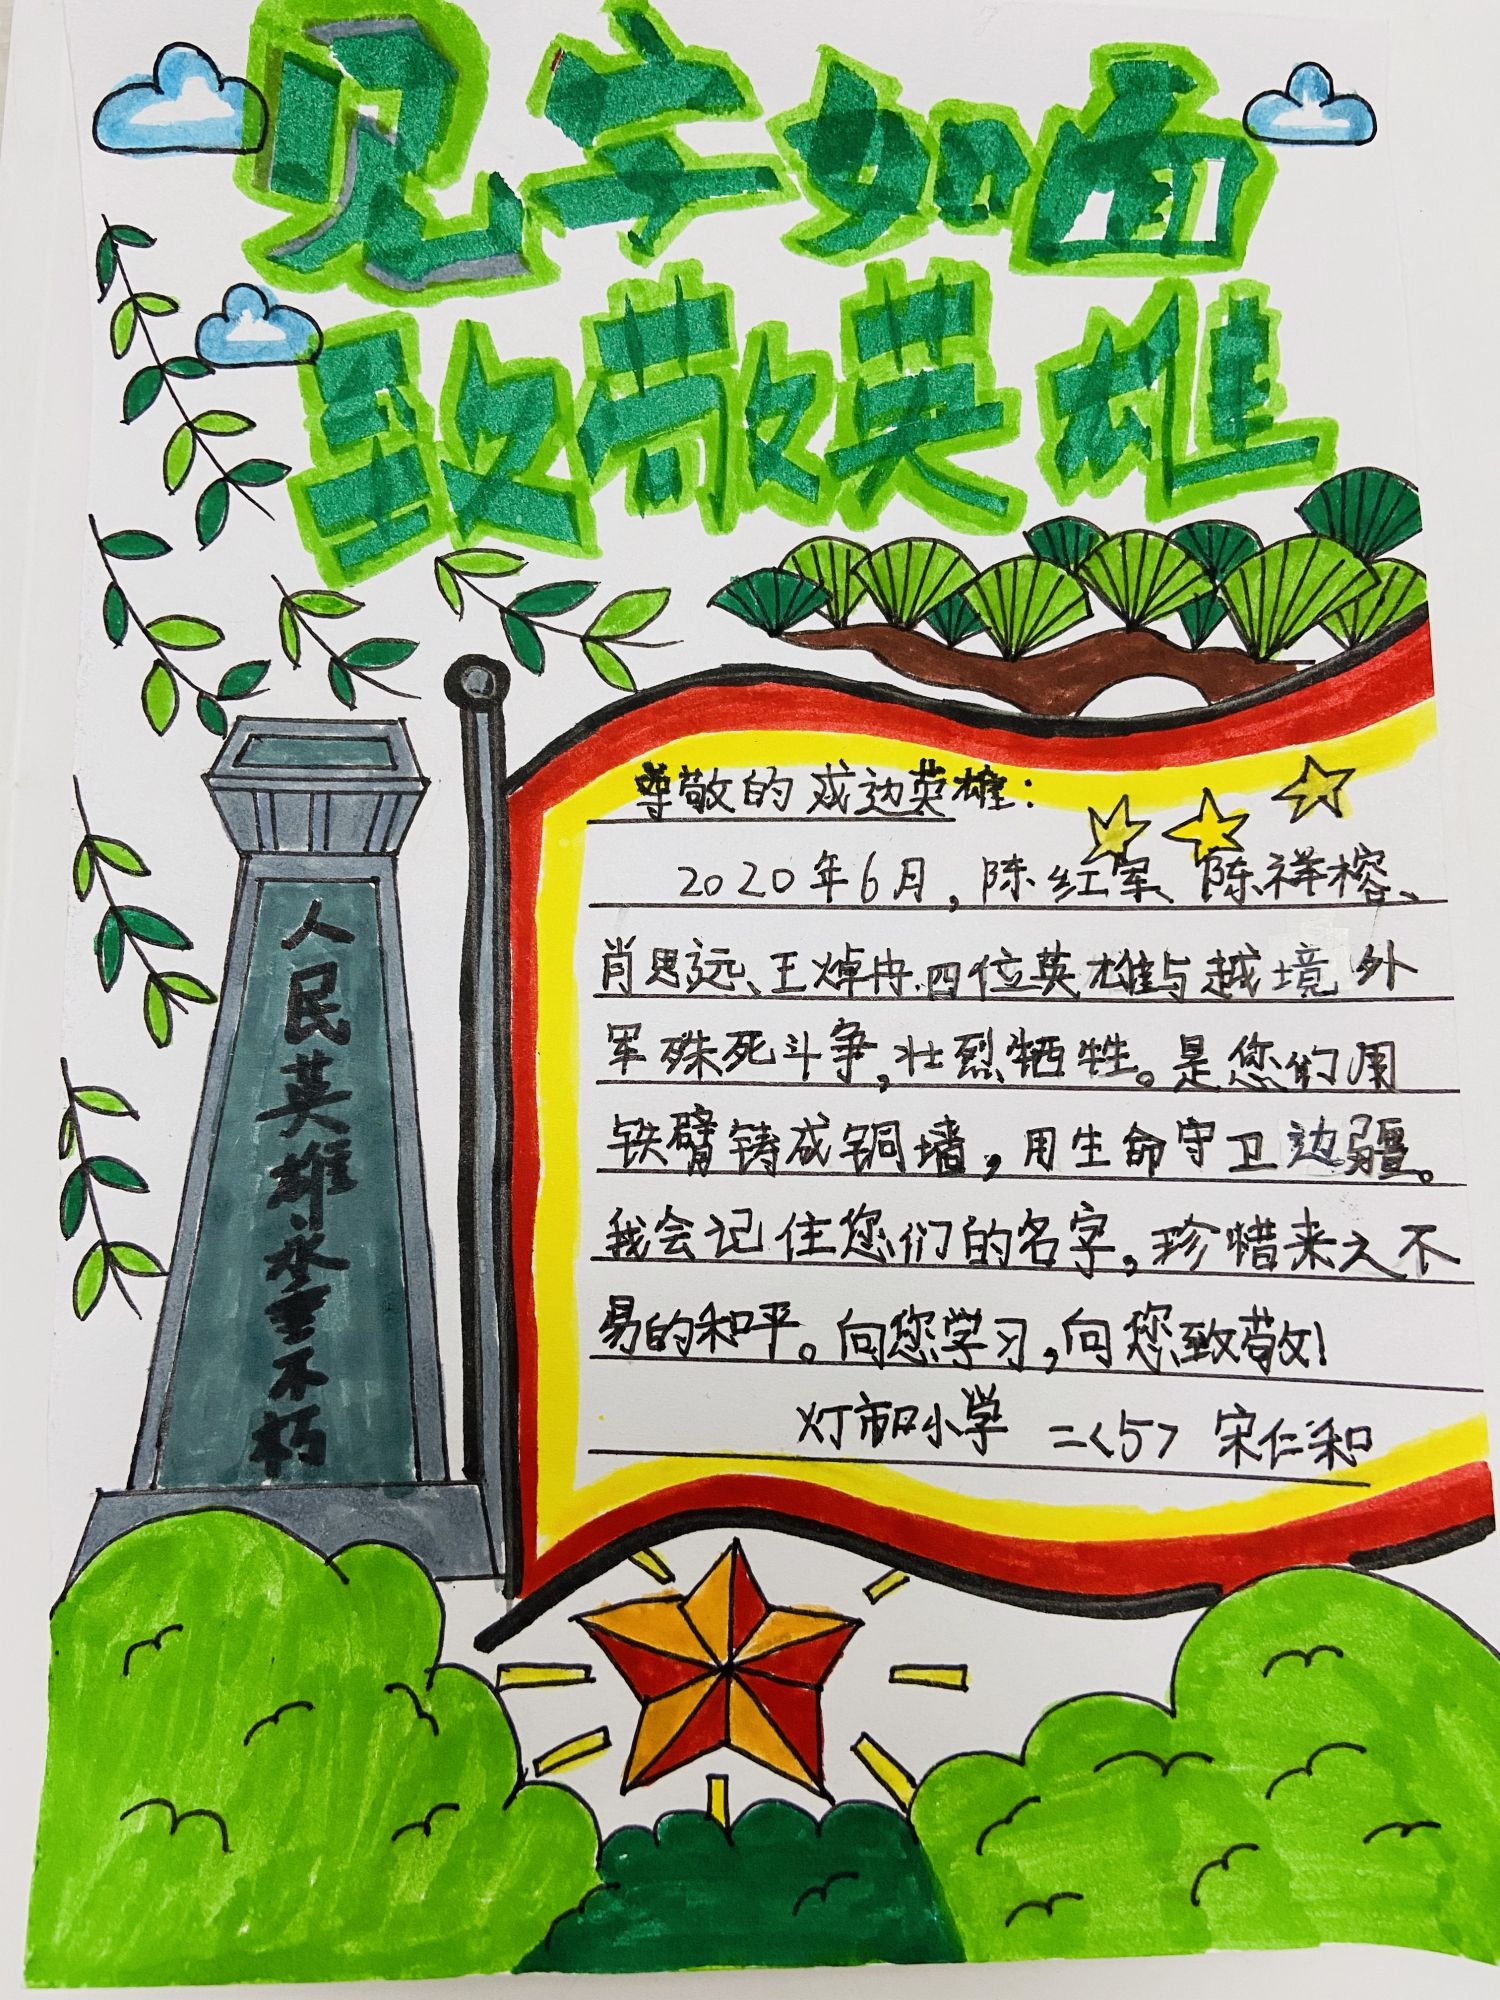 见字如面
致敬英雄
人民英雄永垂不朽
尊敬的戍边英雄：
2020年6月，陈红军、陈祥榕、
肖思远、王焯冉四位英雄与越境外
军殊死斗争，壮烈牺牲。是您们用
铁臂铸成铜墙，用生命守卫边疆。
我会记住您们的名字，珍惜来之不
易的和平。向您学习，向您致敬！
灯市口小学 二<5> 宋仁和